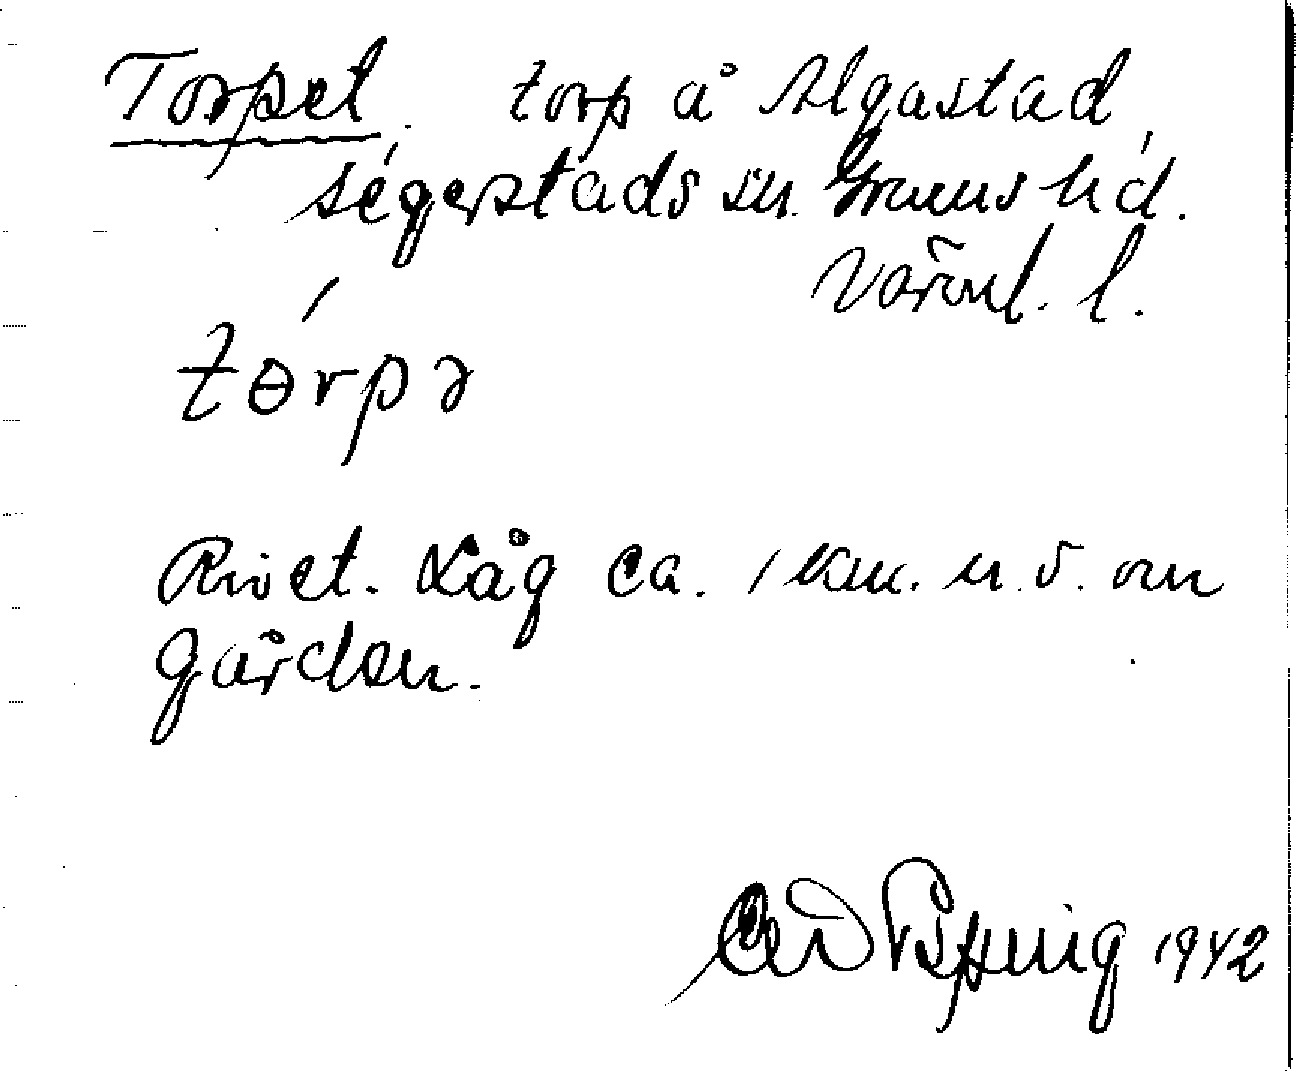 Torpet. torp å Algastad,
Segerstads sn. Grums hd.
Värml. l.
tɵ́rpə
Rivet. Låg ca. 1 km. n.ö. om
gården.
1942